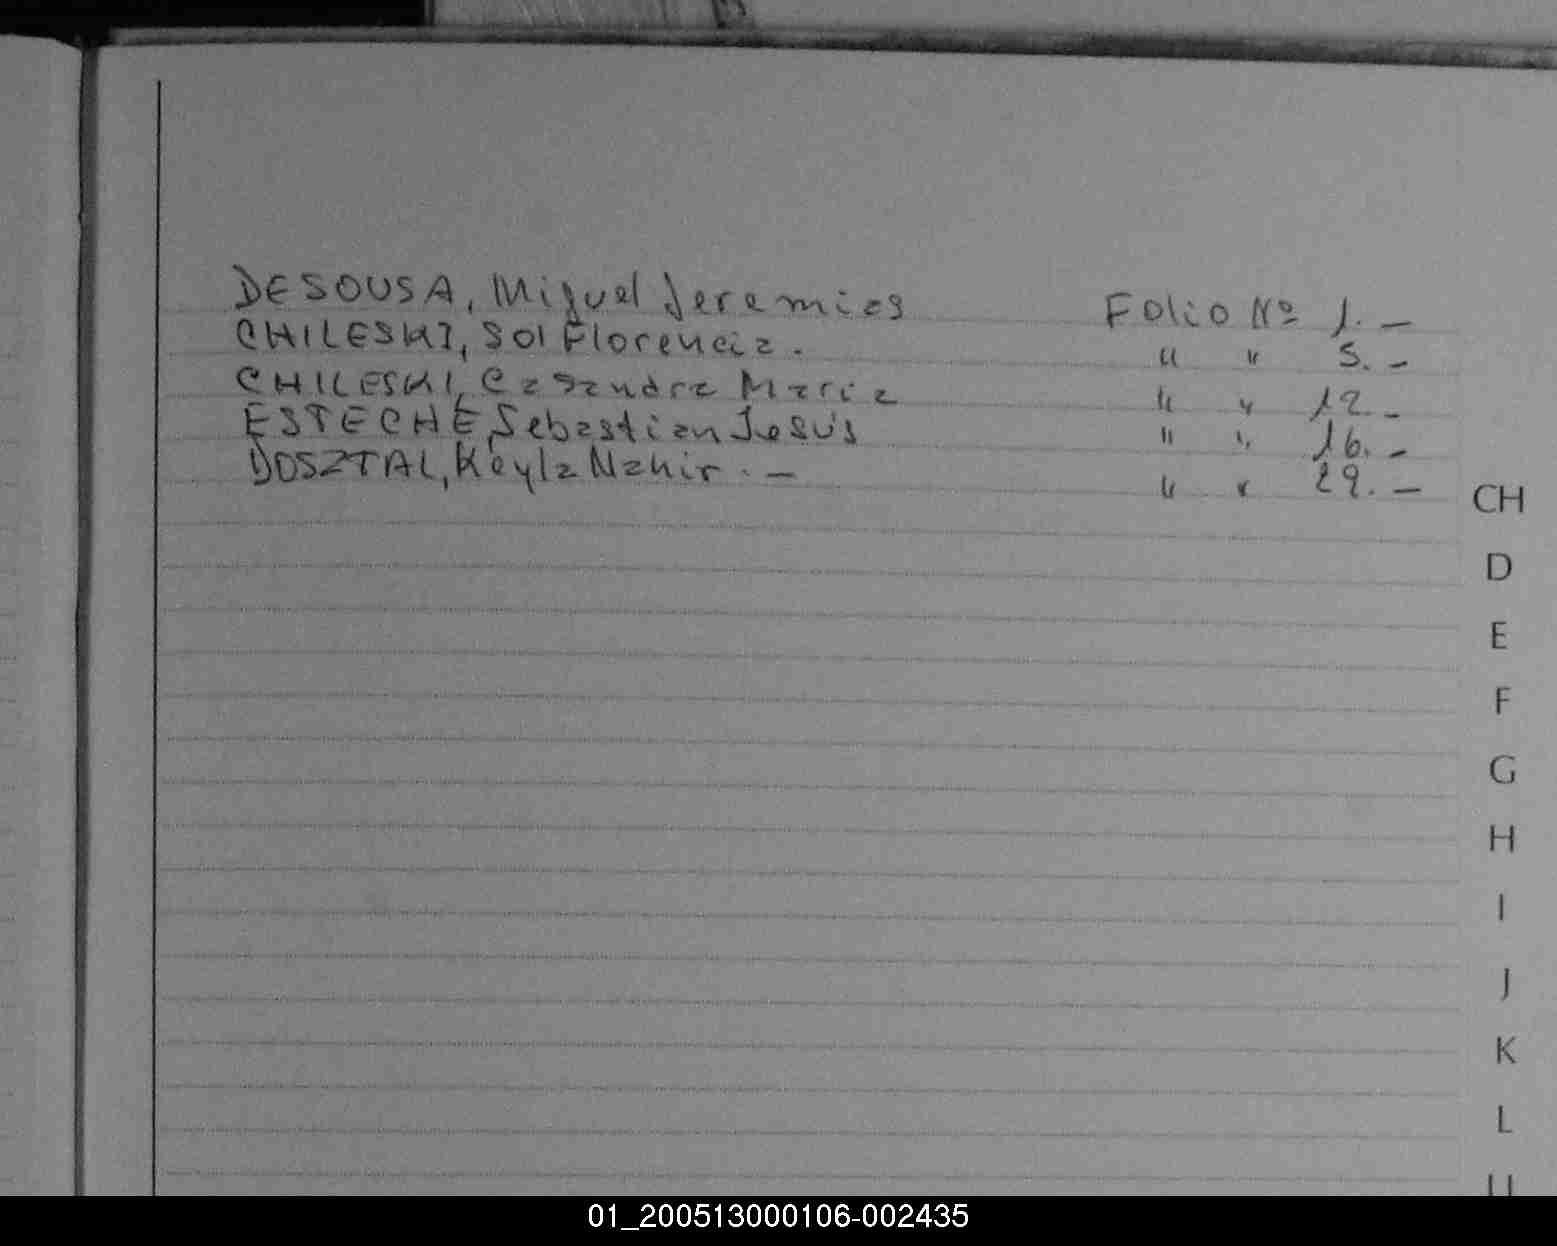 DESOUSA, Miguel Jeremias Folio Nº 1. -
CHILESKI, Sol Florencia. " " 5. -
CHILESKI, Casandra Maria " " 12. -
ESTECHE, Sebastian Jesús " " 16. -
DOSZTAL, Keyla Nahir. - " " 29. -
CH
D
E
F
G
H
I
J
K
L
01_200513000106-002435